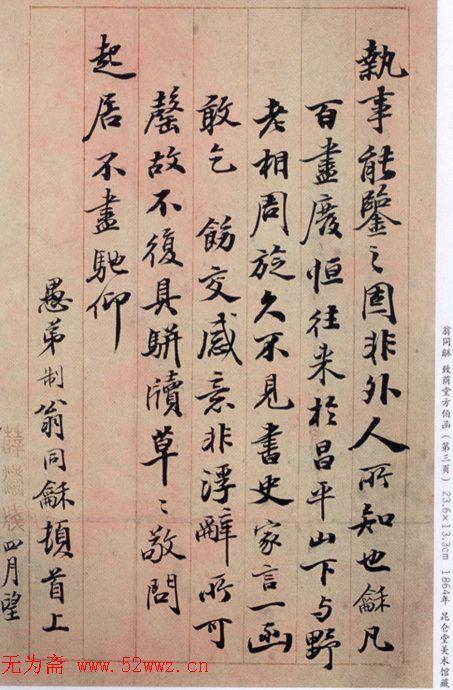 執事能鑒之固非外人所知也龢凡
百盡廢恒往来於昌平山下与野
老相周旋久不見書史家言一函
敢乞 飭交感意非浮辭所可
罄故不復具駢牘草〻敬問
起居不盡馳仰
愚弟制翁同龢頓首上
四月望
翁同龢 致荫堂方伯函(第三页) 23.6×13.3cm 1864年 昆仑堂美术馆藏
无为斋 www.52wwz.cn